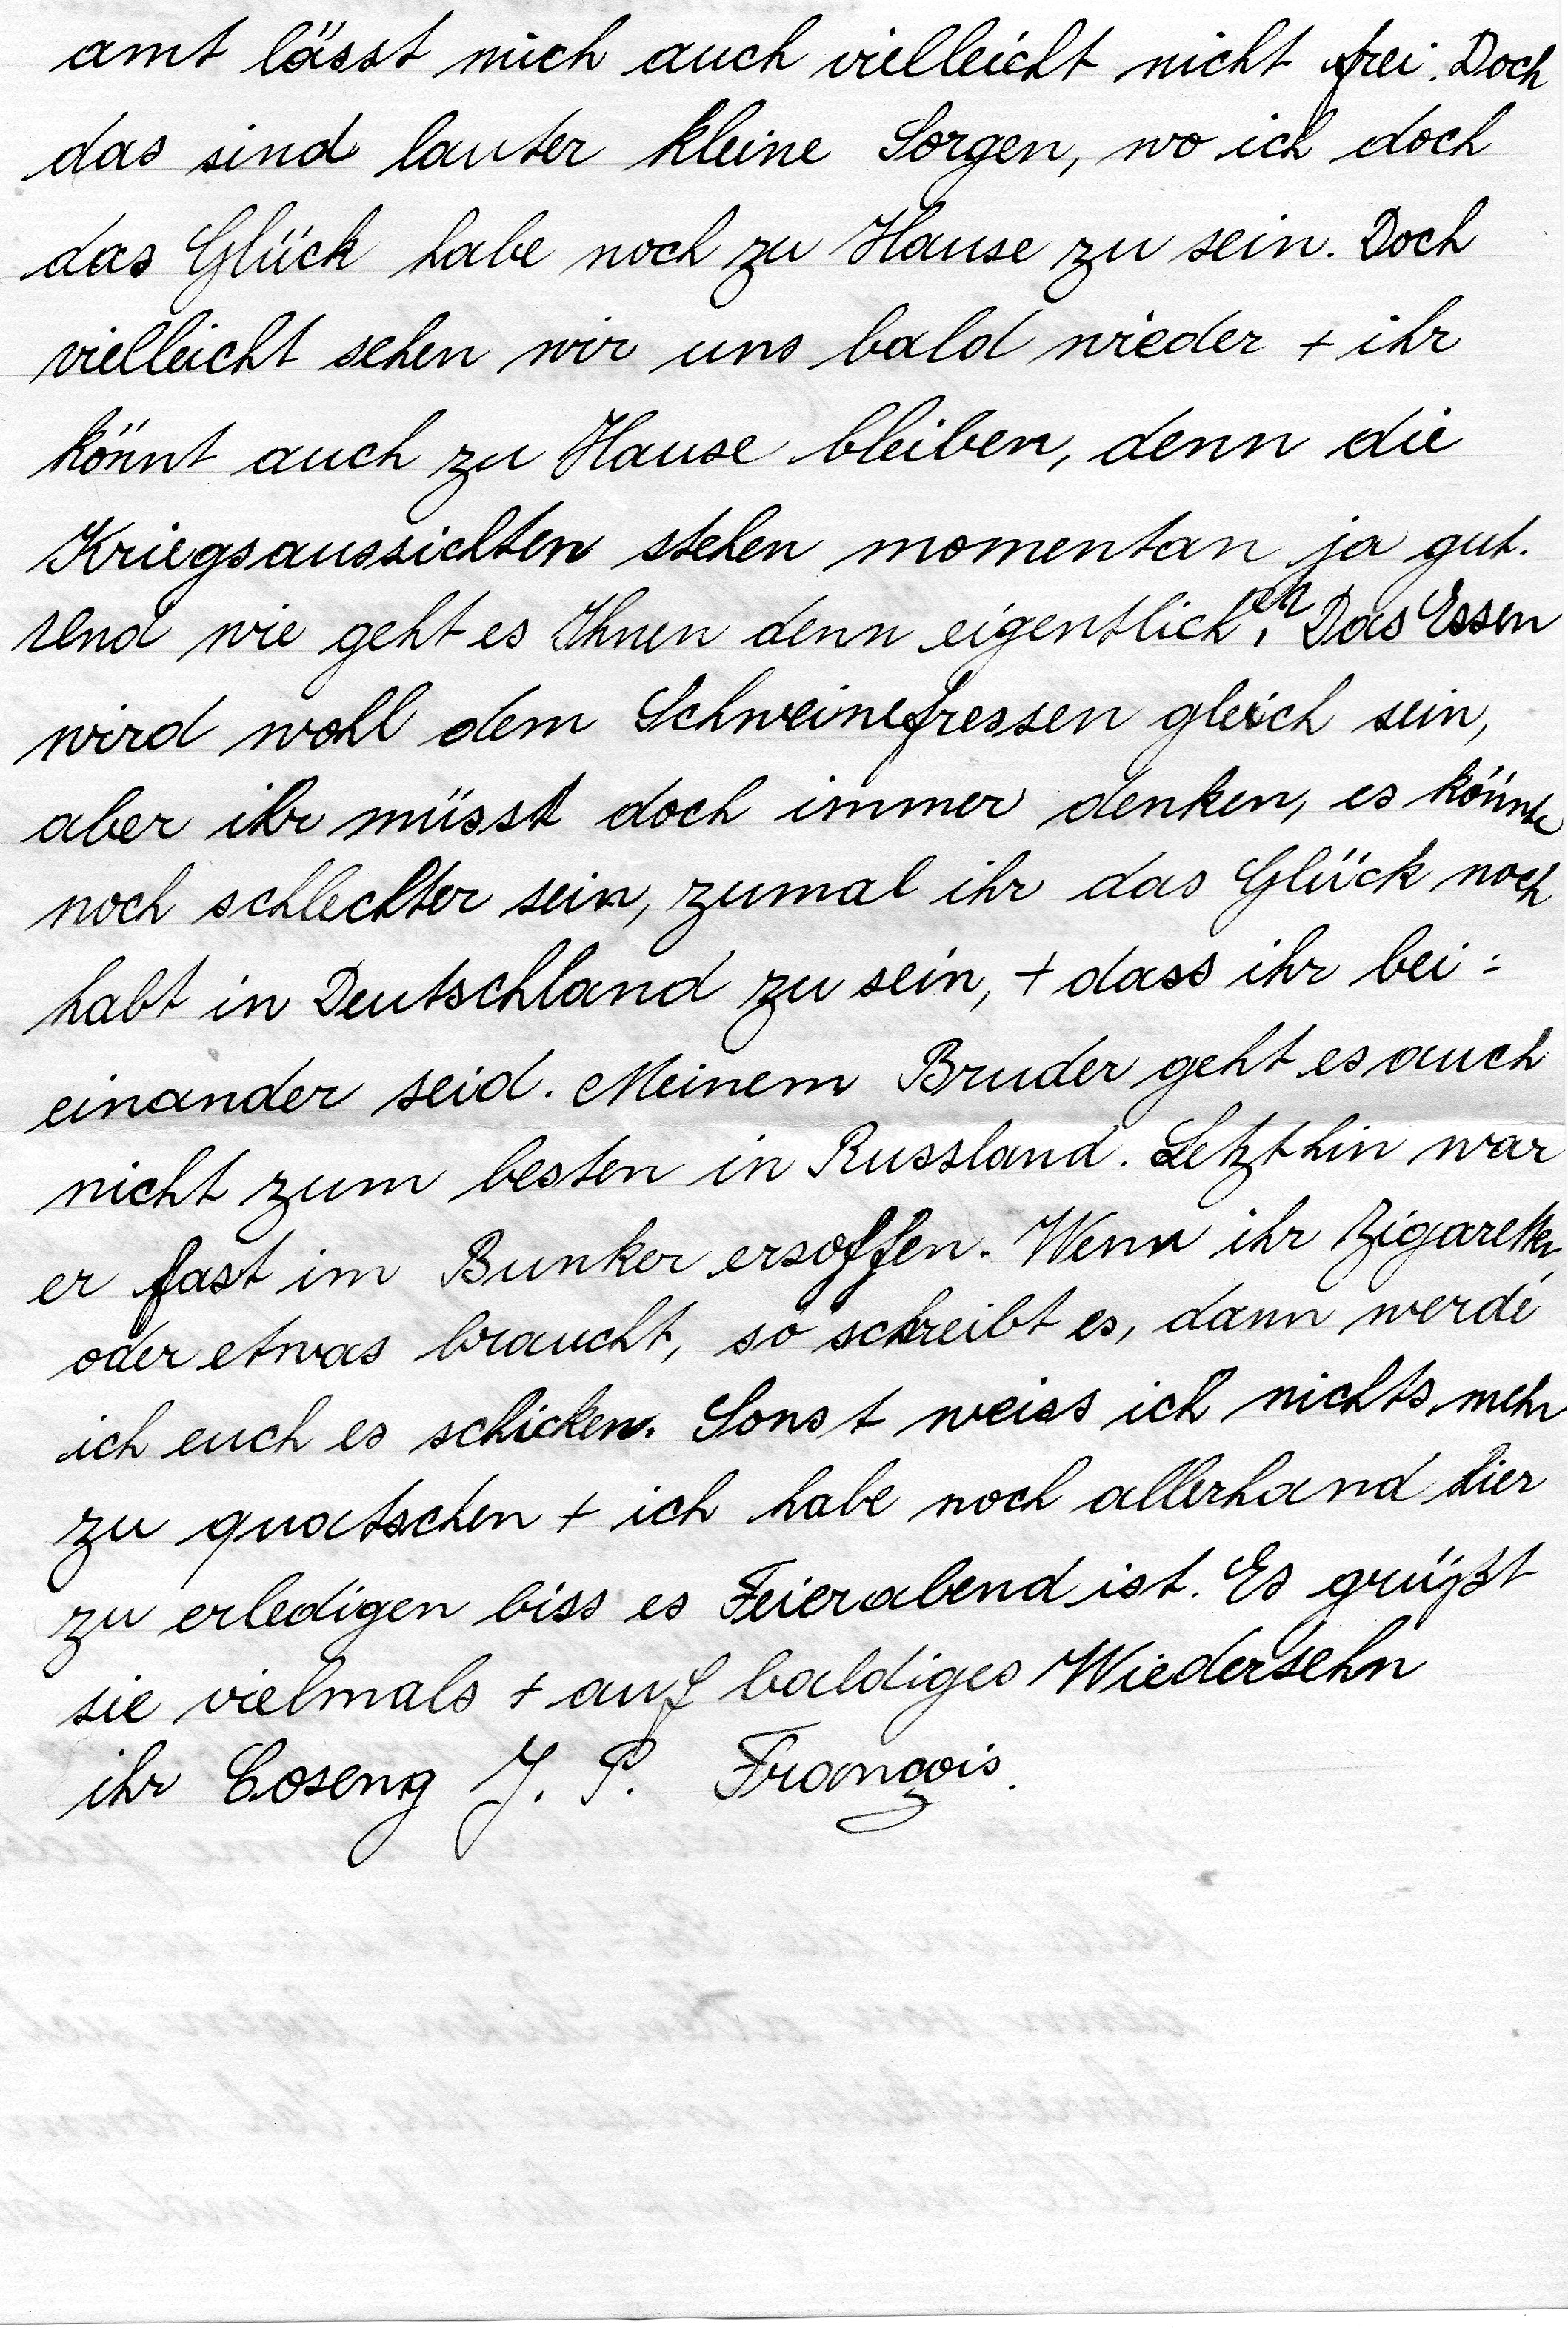 amt lässt mich auch vielleicht nicht frei. Doch
das sind lauter kleine Sorgen, wo ich doch
das Glück habe noch zu Hause zu sein. Doch
vielleicht sehen wir uns bald wieder + ihr
könnt auch zu Hause bleiben, denn die
Kriegsaussichten stehen momentan ja gut.
Und wie geht es Ihnen denn eigentlich. Das Essen
wird wohl dem Schweinefressen gleich sein,
aber ihr müsst doch immer denken, es könnte
noch schlechter sein, zumal ihr das Glück noch
habt in Deutschland zu sein, + dass ihr bei=
einander seid. Meinem Bruder geht es auch
nicht zum besten in Russland. Letzthin war
er fast im Bunker ersoffen. Wenn ihr Zigaretten
oder etwas braucht, so schreibt es, dann werde
ich euch es schicken. Sonst weiss ich nichts mehr
zu quatschen + ich habe noch allerhand hier
zu erledigen biss es Feierabend ist. Es grüßt
sie vielmals + auf baldiges Wiedersehn
ihr Coseng J. P. François.